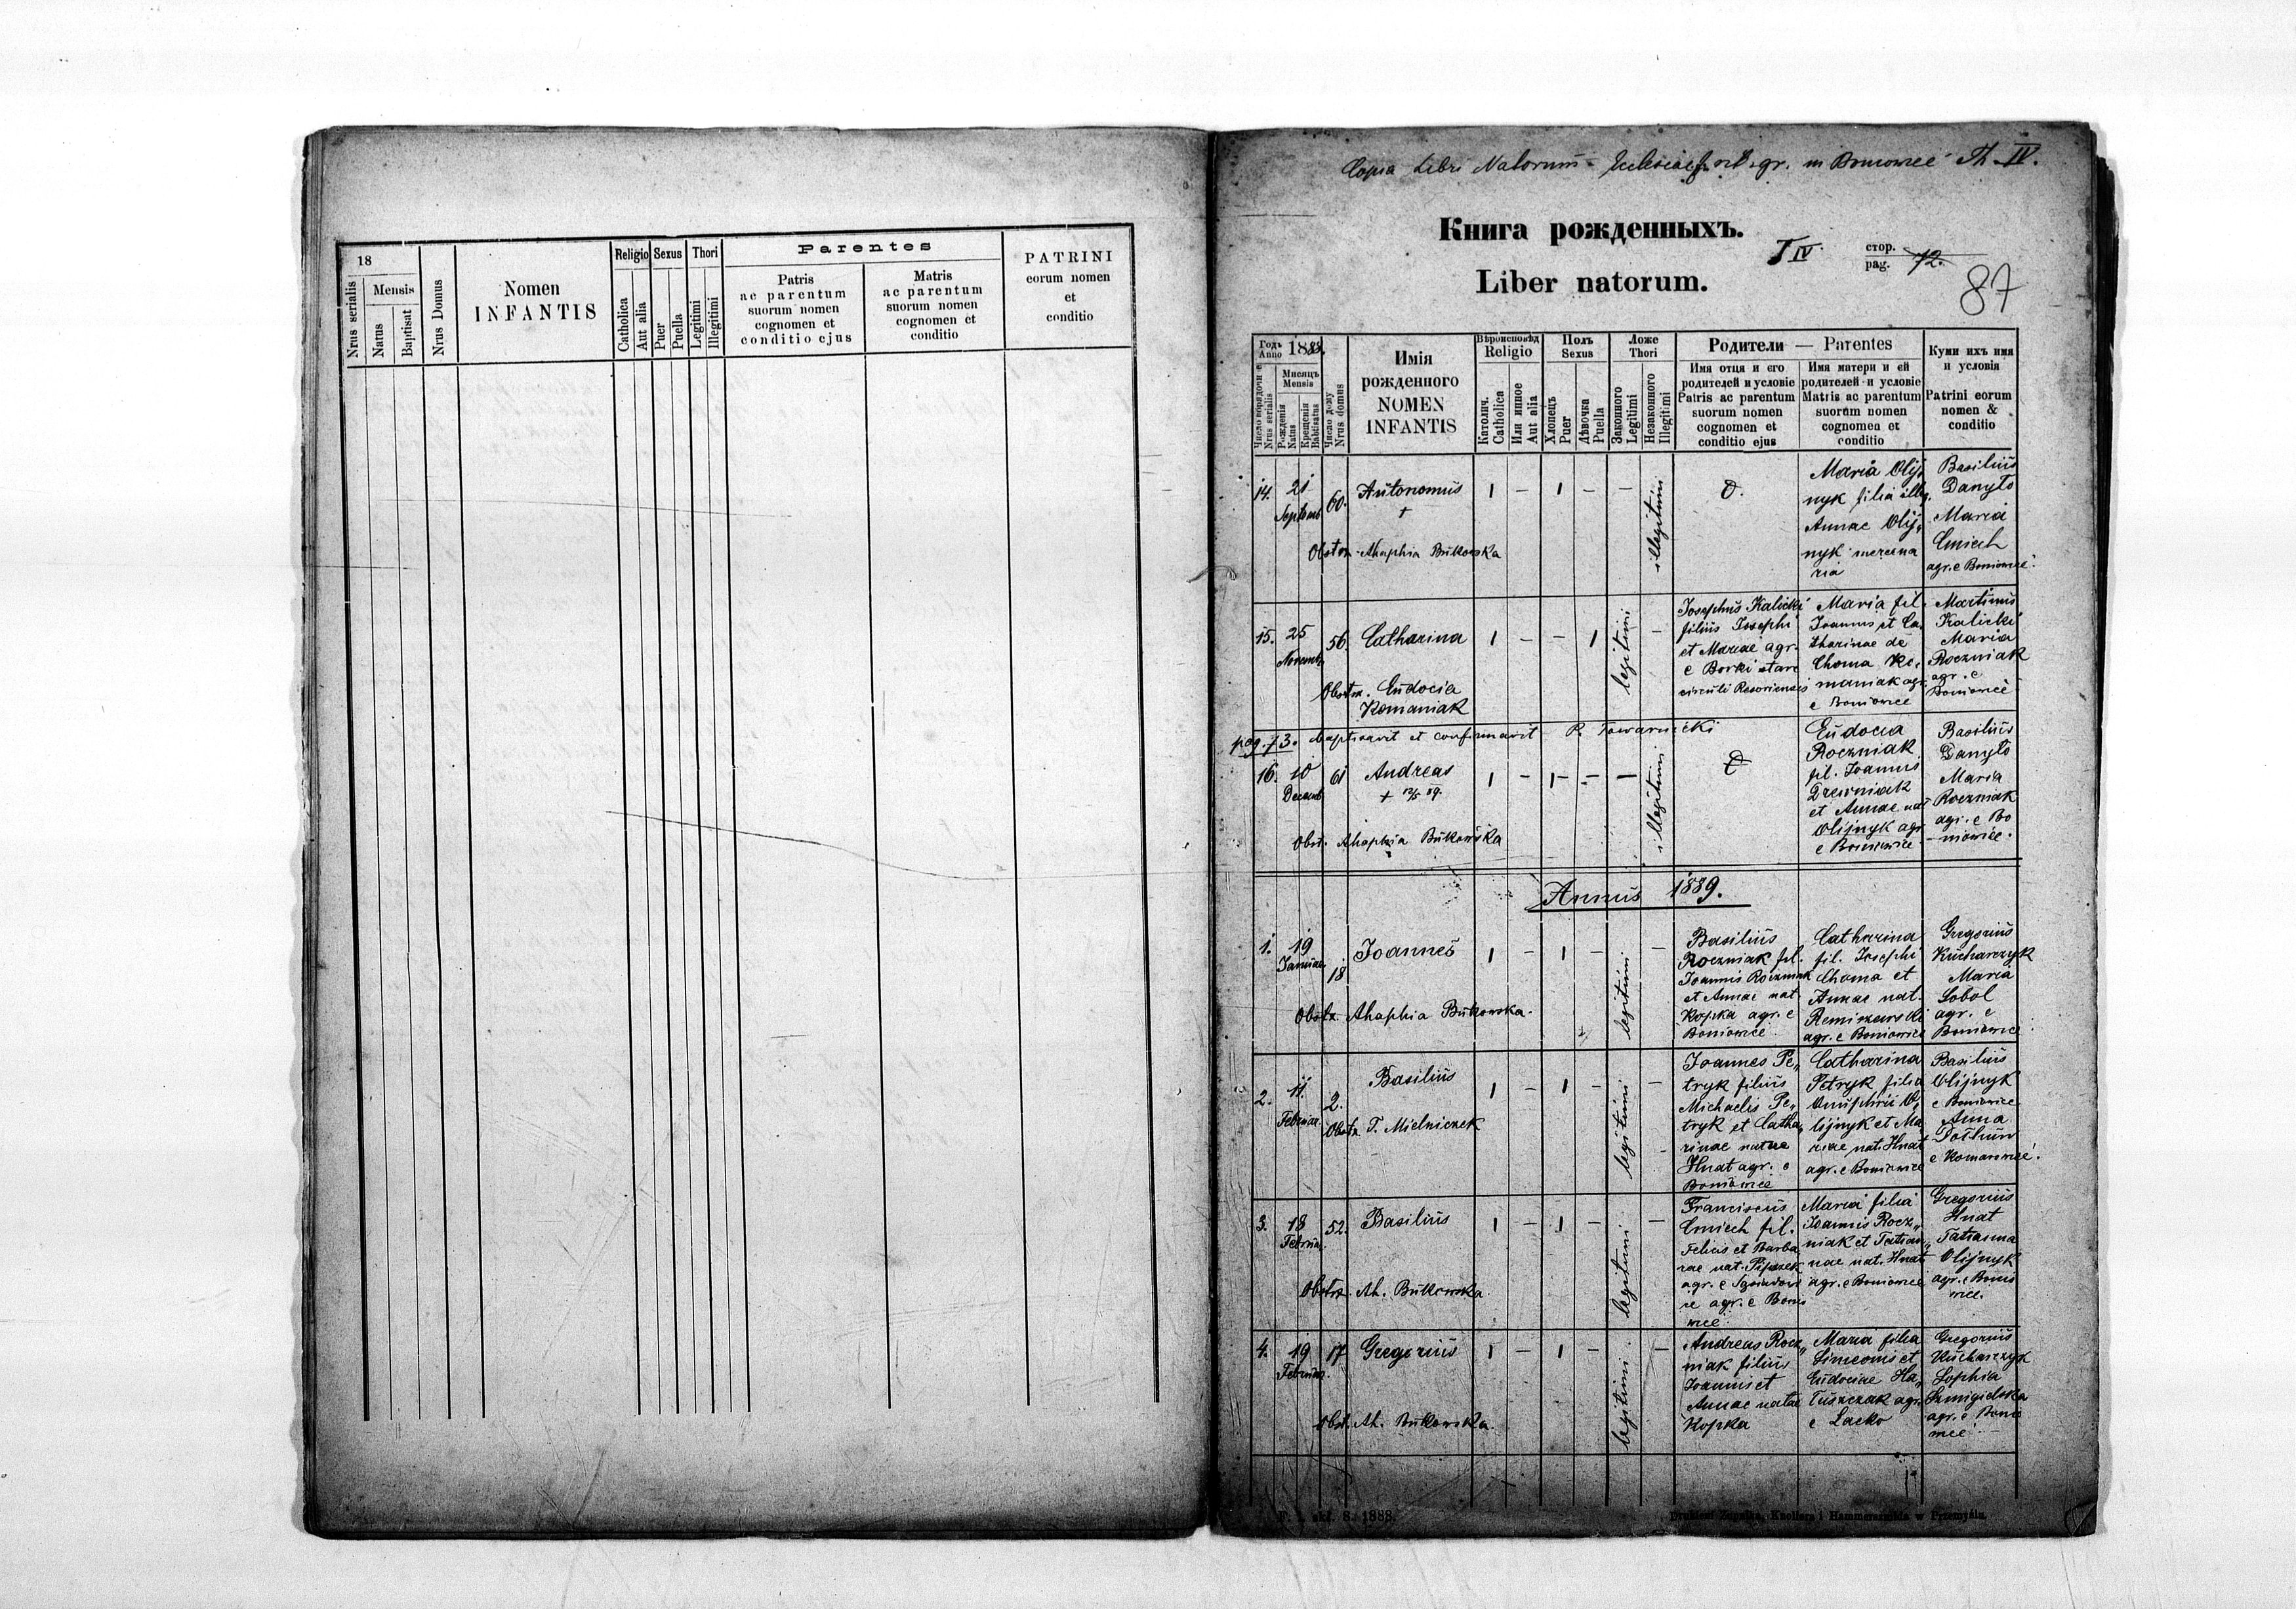 18
Nrus serialis
Mensis
Natus
Baptisat
Nrus Domus
Nomen
INFANTIS
Religio
Catholica
Aut alia
Sexus
Puer
Puella
Thori
Legitimi
Illegitimi
Parentes
Patris
ac parentum
suorum nomen
cognomen et
conditio ejus
Matris
ac parentum
suorum nomen
cognomen et
conditio
PATRINI
eorum nomen
et
conditio
Copia Libri Natorum Ecclesiae gr. in Boniowice Th. IV.
Книга рожденныхъ.
Liber natorum.
T IV.
стор.
pag. 72.
87
Годъ
Anno 1888.
Число порядочное
Nrus serialis
Мисяцъ
Mensis
Рожденія
Natus
Крещенія
Babtisatus
Число дому
Nrus domus
Имія
рожденного
NOMEN
INFANTIS
Вѣроисповѣд
Religio
Католич.
Catholica
Или инное
Aut alia
Полъ
Sexus
Хлопецъ
Puer
Дѣвочка
Puella
Ложе
Thori
Законного
Legitimi
Незаконного
Illegitimi
Родители — Parentes
Имя отця и его
родителей и условіе
Patris ac parentum
suorum nomen
cognomen et
conditio ejus
Имя матери и ей
родителей и условіе
Matris ac parentum
suorum nomen
cognomen et
conditio
Куми ихъ имя
и условія
Patrini eorum
nomen &
conditio
14. 21 Septemb. 60. Antonomus 1 — 1 — — illegitimi
+
Obstx. Ahaphia Bukowska
Maria Olij„
nyk filia illeg.
Annae Olij„
nyk mercena
ria
Basilius
Danyło
Maria
Cmiech
agr. e Boniowice
15. 25 Novemb. 56. Catharina 1 — — 1 legitimi —
Obstx. Eudocia
Romaniak
Josephus Kalicki
filius Josephi
et Mariae agr.
e Borki stare
circuli Resoviensis
Maria fil.
Joannis et Ca„
tharinae de
Choma Ro„
maniak agr.
e Boniowice
Martinus
Kalicki
Maria
Roczniak
agr. e
Boniowice
pag. 73. baptisavit et confirmavit P. Towarnicki
16. 10 Decemb. 61 Andreas 1 — 1 — — illegitimi
+ 12/5 89.
Obst. Ahaphia Bukowska
Eudocia
Roczniak
fil. Joannis
Drewniak
et Annae nat
Olijnyk agr.
e Boniowice
Basilius
Danyło
Maria
Roczniak
agr. e Bo
niowice.
Annus 1889.
1. 19 Januar. 18 Joannes 1 — 1 — legitimi —
Obstx. Ahaphia Bukowska.
Basilius
Roczniak fil.
Joannis Roczniak
et Annae nat.
Kopka agr. e
Boniowice
Catharina
fil. Josephi
Choma et
Annae nat.
Remiszewski
agr. e Boniowice
Gregorius
Kucharczyk
Maria
Sobol
agr. e
Boniowice
2. 11. Februar. 2. Basilius 1 — 1 — legitimi —
Obstx T. Mielniczek
Joannes Pe„
tryk filius
Michaelis Pe„
tryk et Catha„
rinae natae
Hnat agr. e
Boniowice
Catharina
Petryk filia
Onuphrii O„
lijnyk et Ma
riae nat. Hnat
agr. e Boniowice
Basilius
Olijnyk
e Boniowice
Anna
e Komarowice.
3. 18 Februar. 52. Basilius 1 — 1 — legitimi —
Obstx. Ah. Bukowska
Franciscus
Cmiech fil.
Felicis et Barba
rae nat.
agr. e
agr. e Bonio
wice
Maria filia
Joannis Rocz„
niak et Tatian„
nae nat. Hnat
agr. e Boniowice
Gregorius
Hnat
Tatianna
Olijnyk
agr. e Bonio
wice.
4. 19 Februar. 17 Gregorius 1 — 1 — legitimi —
Obst. Ah. Bukowska.
Andreas Rocz„
niak filius
Joannis et
Annae natae
Kopka
Maria filia
Simeonis et
Eudociae Ha„
luszczak agr.
e Lacko
Gregorius
Kucharczyk
Sophia
Szmigielska
agr. e Bonio
wice
1888.
w Przemyślu.